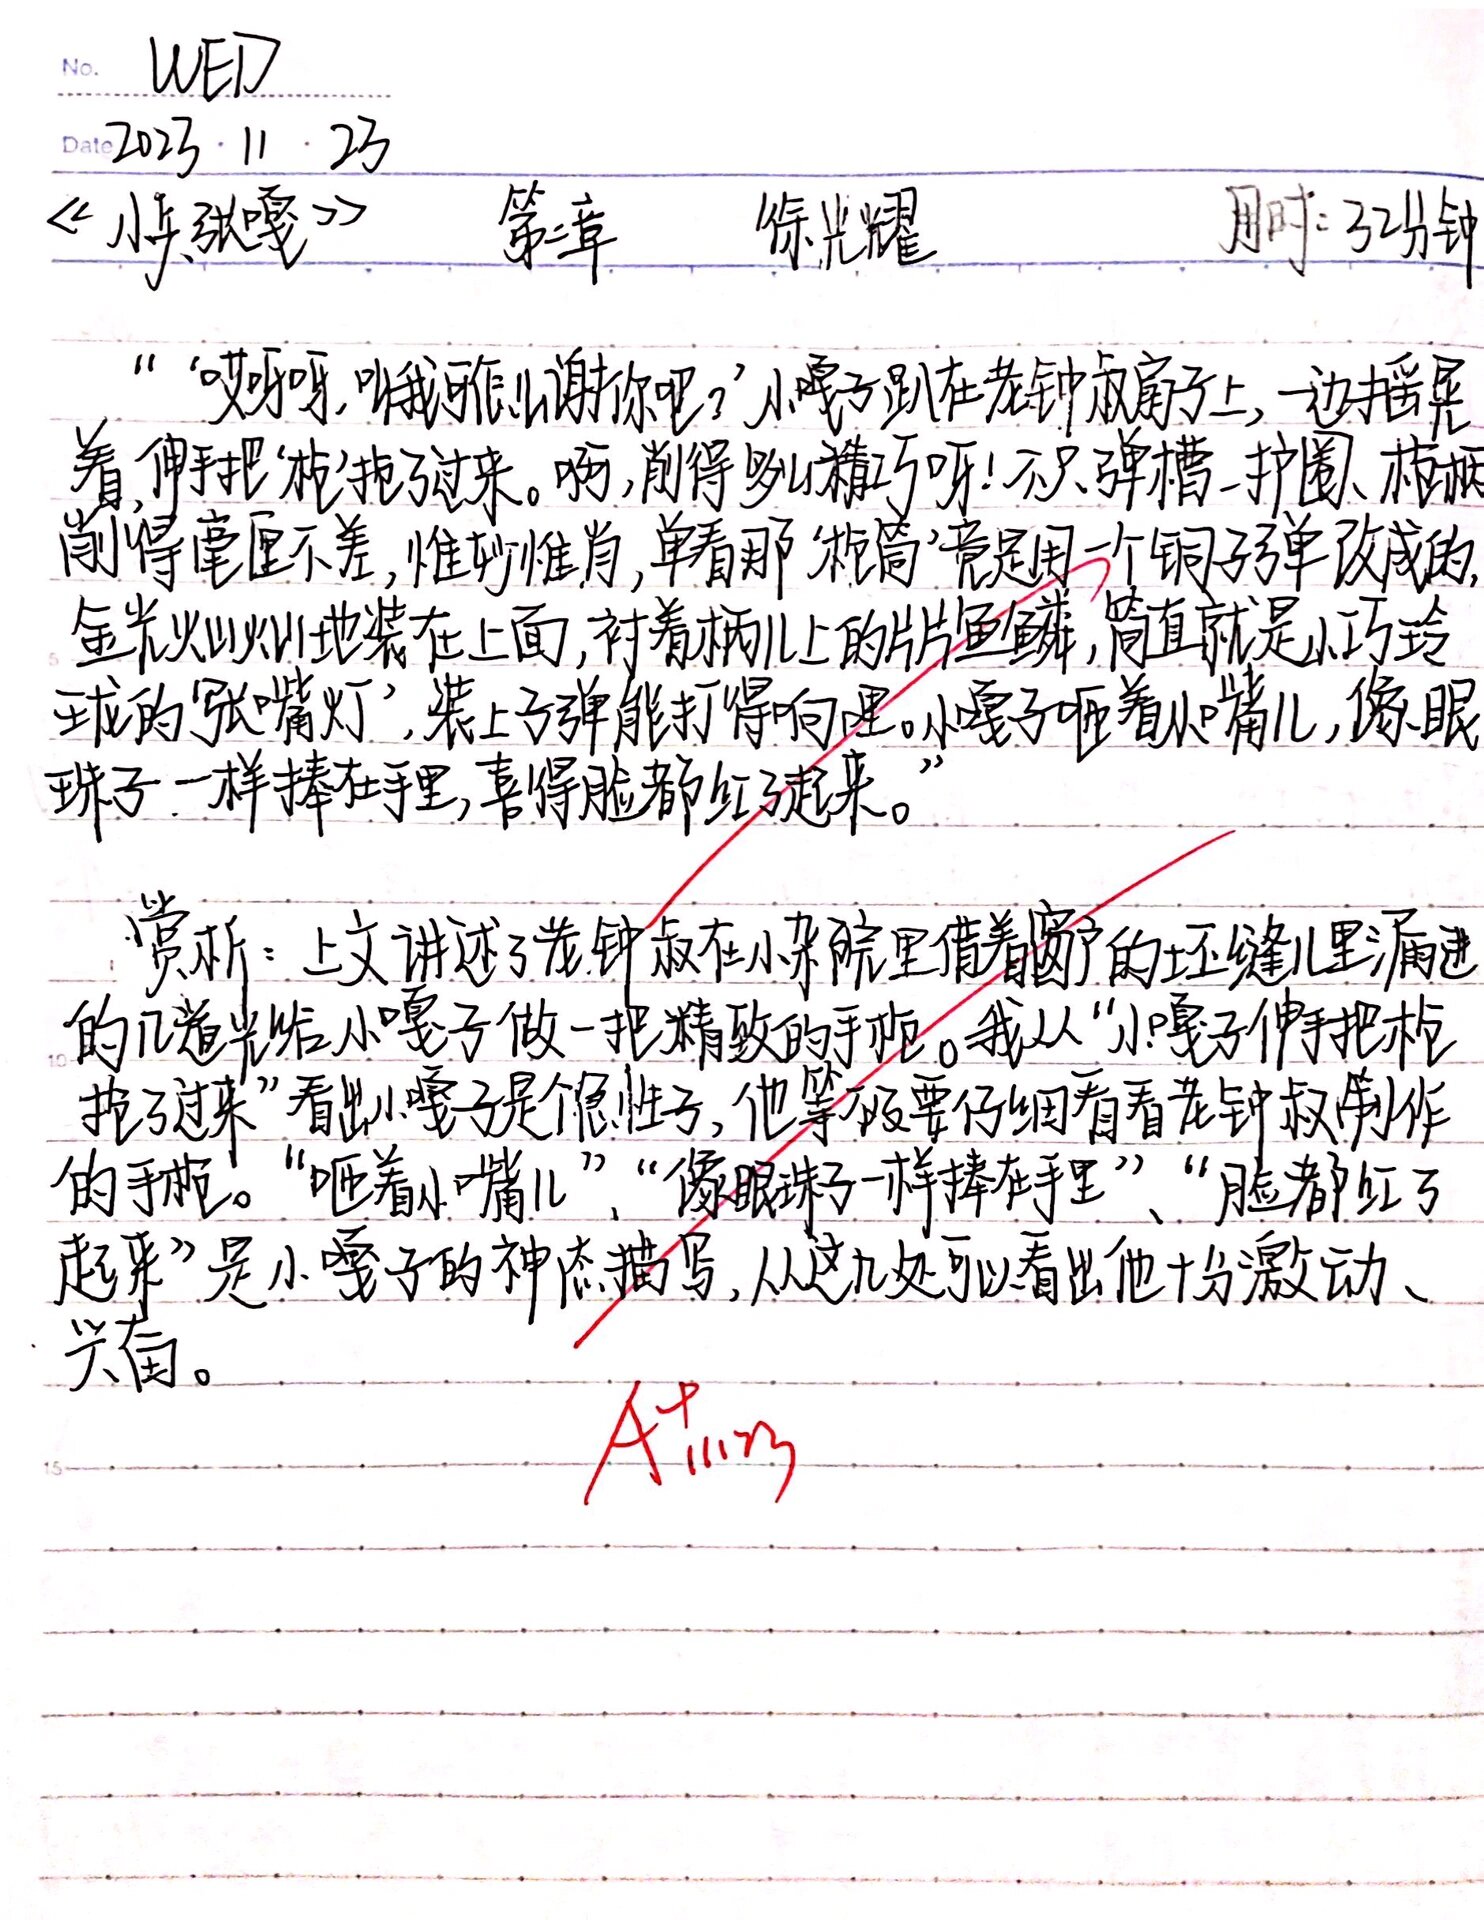 No. WED
Date 2023·11·23
《小兵张嘎》 第二章 徐光耀 用时:32分钟
“‘哎呀呀,叫我可怎么谢你吧?’小嘎子趴在老钟叔肩子上,一边摇晃
着,伸手把‘枪’抢了过来。嗬,削得多么精巧呀!不只弹槽、护圈、枪柄
削得毫厘不差,惟妙惟肖,单看那‘枪筒’竟是用一个铜子弹改成的,
金光灿灿地装在上面,衬着柄儿上的片片鱼鳞,简直就是小巧玲
珑的‘张嘴灯’,装上子弹能打得响哩。小嘎子咂着小嘴儿,像眼
珠子一样捧在手里,喜得脸都红了起来。”
赏析:上文讲述了老钟叔在小杂院里借着窗户的坯缝儿里漏进
的几道光给小嘎子做一把精致的手枪。我从“小嘎子伸手把枪
抢了过来”看出小嘎子是个急性子,他等不及要仔细看看老钟叔制作
的手枪。“咂着小嘴儿”、“像眼珠子一样捧在手里”、“脸都红了
起来”是小嘎子的神态描写,从这几处可以看出他十分激动、
兴奋。
A+ 11.23
5
10
15